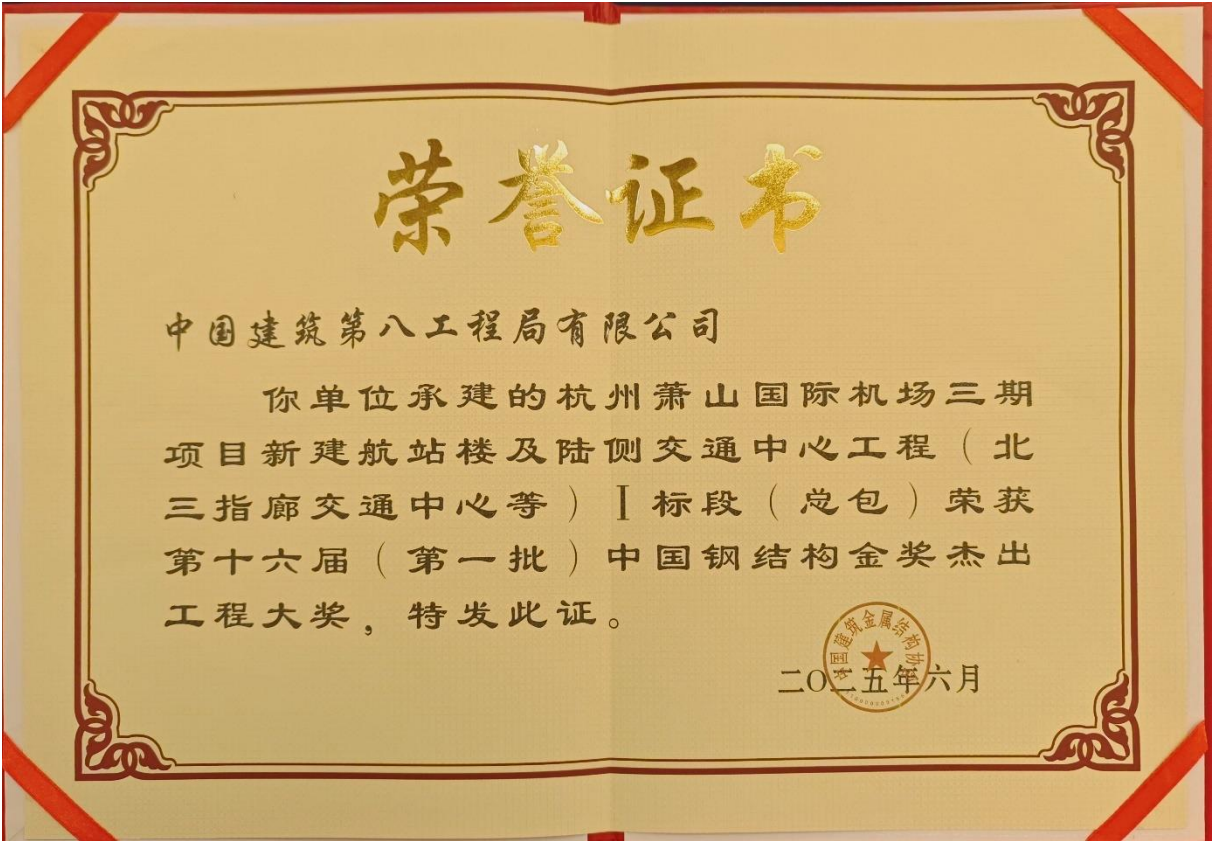 荣誉证书
中国建筑第八工程局有限公司
你单位承建的杭州萧山国际机场三期
项目新建航站楼及陆侧交通中心工程（北
三指廊交通中心等）Ⅰ标段（总包）荣获
第十六届（第一批）中国钢结构金奖杰出
工程大奖，特发此证。
中国建筑金属结构协会
二〇二五年六月